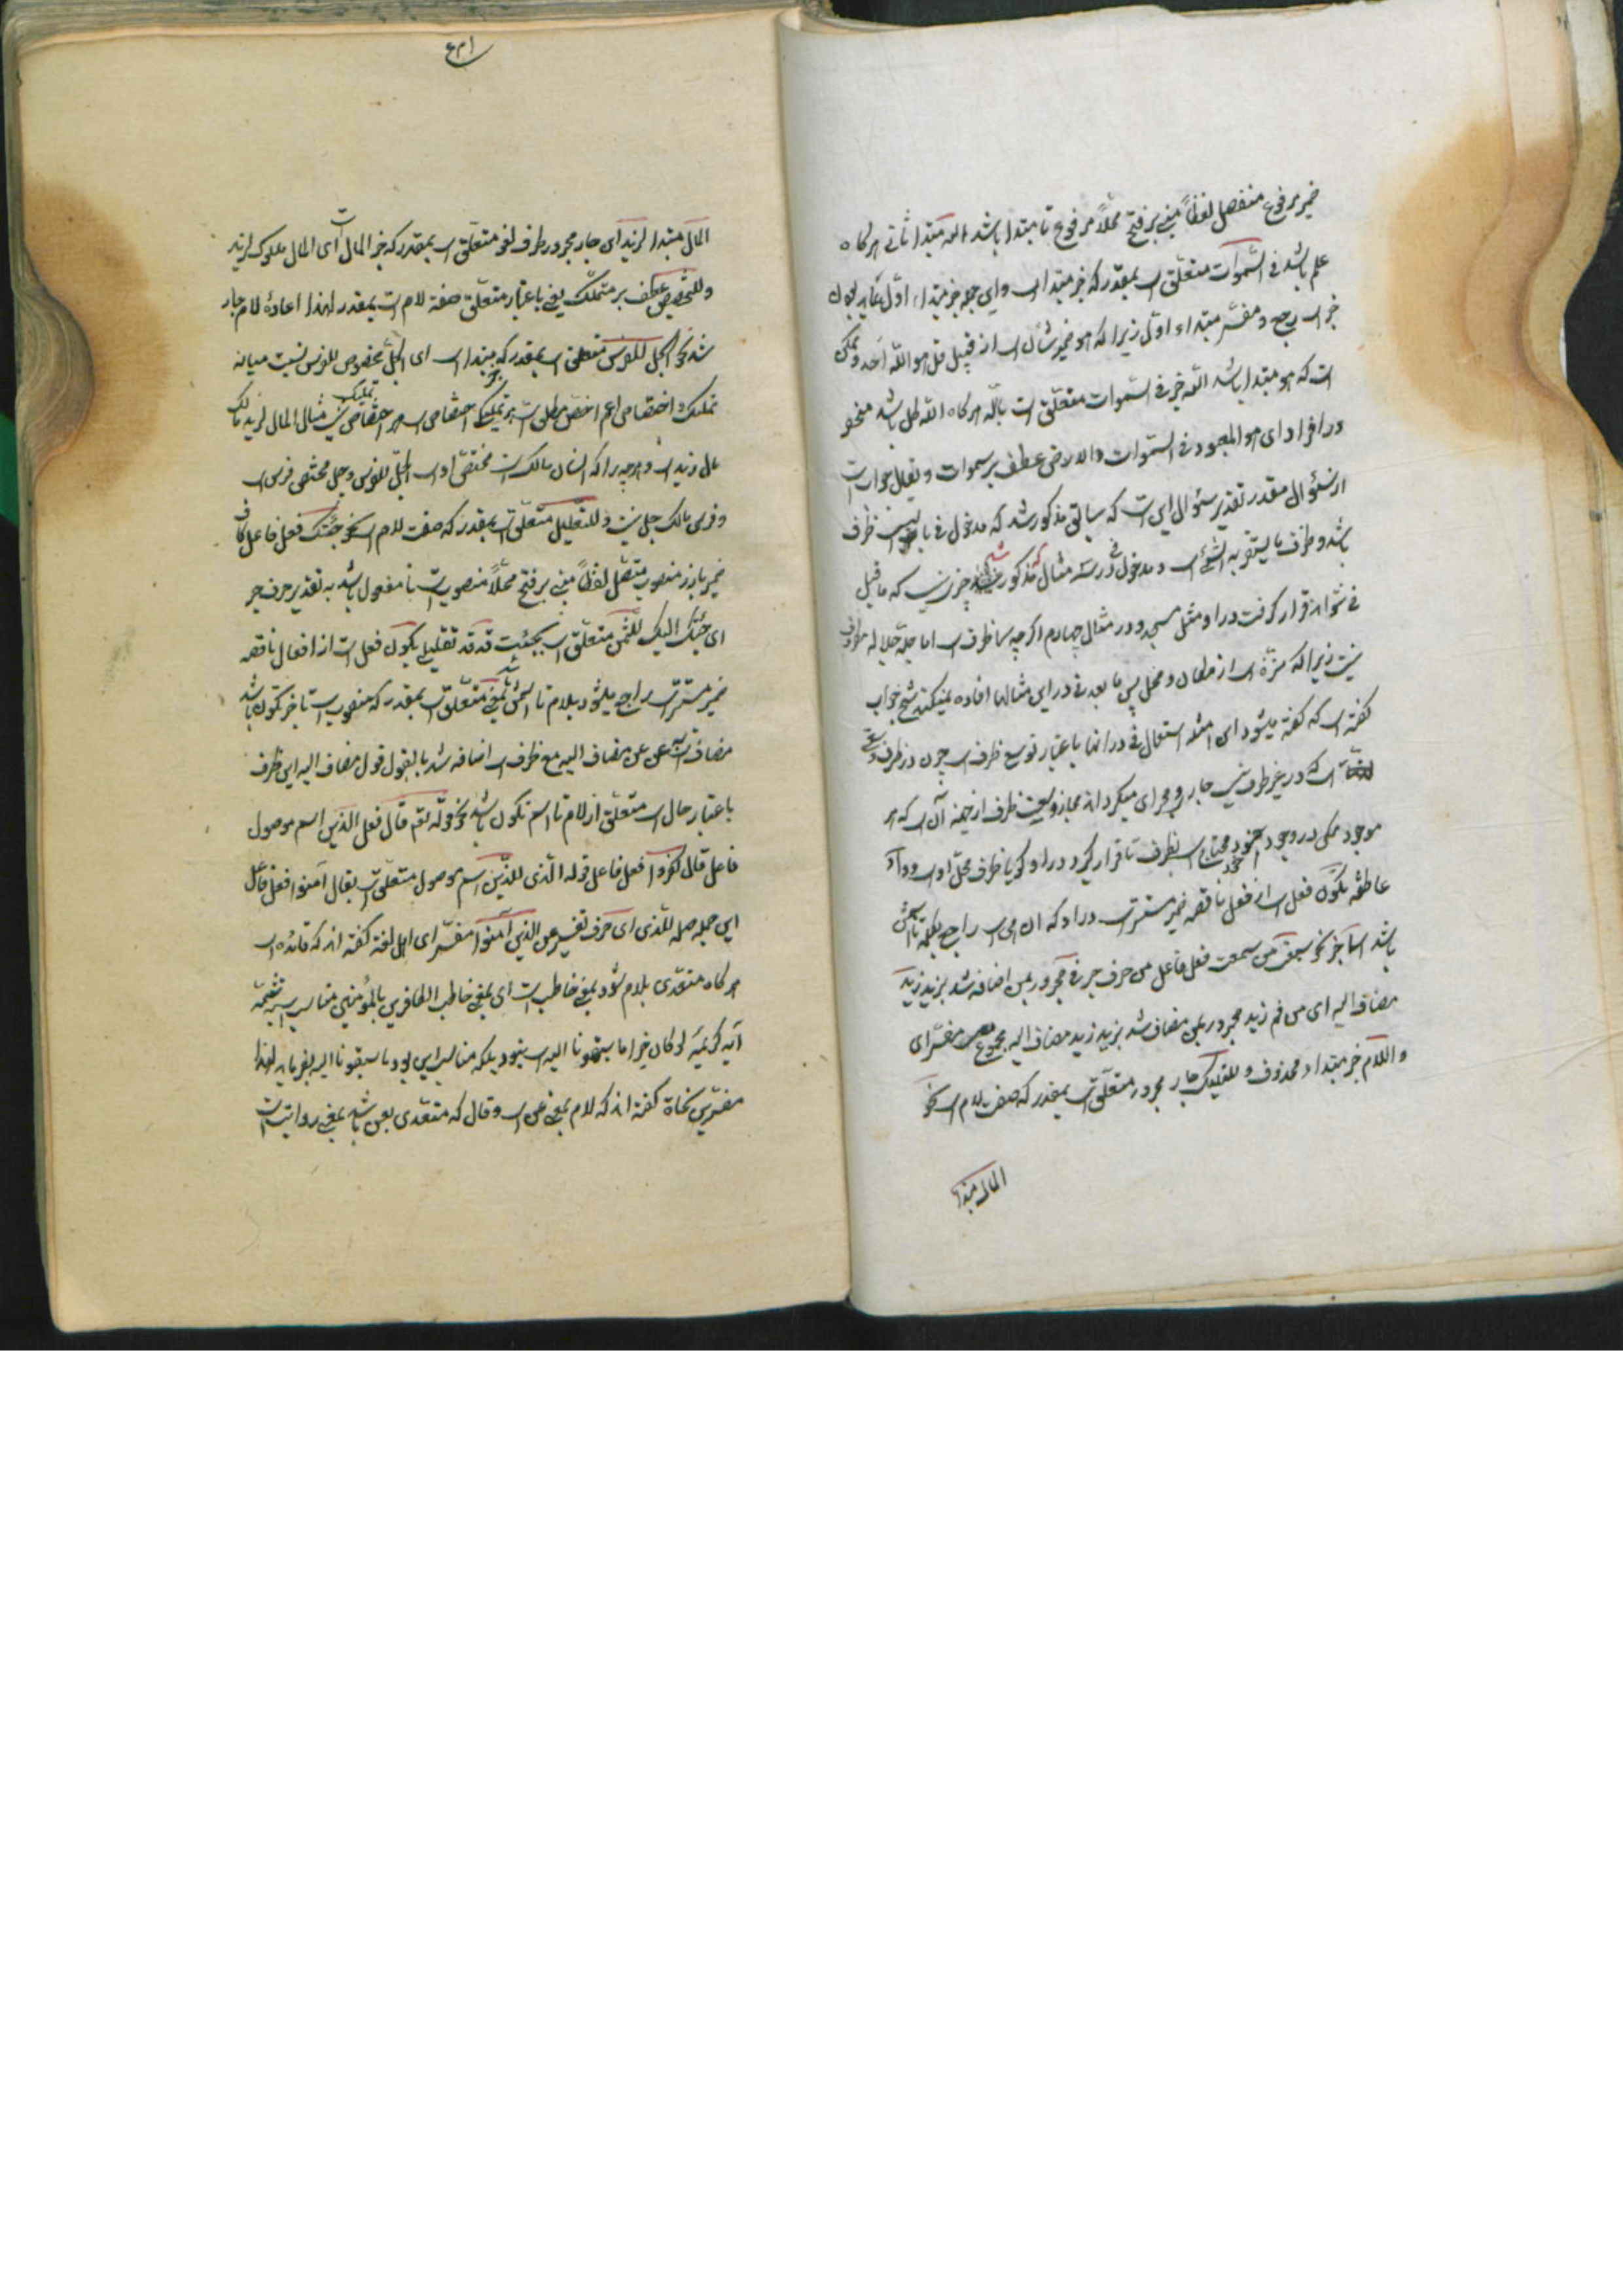 ضمیر مرفوع منفصل لفظاً مبنی بر فتح محلاً مرفوع تا مبتدا باشد الله مبتدا ثانی هرکاه
علم باشد فی السموات متعلق است بمقدر که خبر مبتدا است و این جمله خبر مبتداء اول
خبر است و مفسر مبتداء اول زیرا که هو ضمیر شأن است از قبیل قل هو الله احد و ممکن
است که هو مبتدا باشد الله خبر فی السموات متعلق است بالله هرکاه الله
در افراد ای هو المعبود فی السموات والارض عطف بر سموات و یقال جواب است
از سئوال مقدر تقدیر سئوال این است که سابق مذکور شد که مدخول فی باید ظرف
باشد و ظرف ما یستقر به الشیء است و مدخول فی در سه مثال مذکور چیزی نیست که ما قبل
فی تواند قرار کرفت در او مثل مسجد و در مثال چهارم اکرچه سما ظرف است اما جل جلاله مظروف
نیست زیرا که منزه است از مکان و محل پس ما بعد فی در این مثالها افاده نمیکند شیخ جواب
کفته است که کفته میشود این امثله استعمال فی در انها باعتبار توسع ظرف است چون در ظرف
است که در غیر ظرف نیست جاری مجرای میکرداند مجاز و ظرف از حیثیه آن است که هر
موجود ممکن در وجود خود محتاج است بظرف تا قرار کیرد در او کویا ظرف محل او است و واو
عاطفه یکون فعل است از فعل ناقصه ضمیر مستتر است در او که ان هی است راجع بکلمه تا اسمش
باشد اسما خبر نحو من سمعت فعل فاعل من حرف جر فی مجرور بمن اضافه شد بزید زید
مضاف الیه ای من فم زید مجرور بمن مضاف شد بزید زید مضاف الیه مجموع مفسر ای
و اللام خبر مبتداء محذوف و للتملیک جار مجرور متعلق است بمقدر که صفت لام است نحو
المال مبتدا
المال مبتدا لزید ای جار مجرور ظرف لغو متعلق است بمقدر که خبر المال است ای المال مملوک لزید
و للتخصیص عطف بر تملیک یعنی باعتبار متعلق صفة لام است بمقدر لهذا اعادهٔ لام جار
شد نحو الجل للفرس متعلق است بمقدر که خبر مبتدا است ای الجل مخصوص للفرس نسبت میانه
تملیک و اختصاص اعم اخص مطلق است هر تملیک اختصاص است هر اختصاص تملیک نیست مثال المال لزید مالک
مال زید است و هر چه را که انسان مالک است مختص او است الجل للفرس و جل مختص فرس است
و فرس مالک جل نیست و للتعلیل متعلق است بمقدر که صفت لام است نحو جئتک فعل فاعل کاف
ضمیر بارز منصوب متصل لفظاً مبنی بر فتح محلاً منصوب است تا مفعول باشد به تقدیر حرف جر
ای جئتک الیک للثمن متعلق است بجئت قد قد تقلیل یکون فعل است از افعال ناقصه
ضمیر مستتر است راجع میشود بلام تا اسمش باشد بمعنی متعلق است بمقدر که منصوب است تا خبر تکون باشد
مضاف است عن عن مضاف الیه مع ظرف است اضافه شد بالقول قول مضاف الیه این ظرف
باعتبار حال است متعلق از لام تا اسم تکون باشد نحو قوله تعم قال فعل الذین اسم موصول
فاعل قال کفروا فعل فاعل قوله الذی للذین اسم موصول متعلق است بقال آمنوا فعل فاعل
این جمله صله للذی ای حرف تفسیر عن الذین آمنوا مفسر ای اهل لغة کفته اند که قائده است
هر کاه متعدی بلام شود بمعنی خاطب است ای بمعنی خاطب الکافرین بالمؤمنین مناسب تتمه
آیه کریمه لو کان خیرا ما سبقونا الیه است نبود بلکه مناسب این بود ما سبقونا الیه بفرماید لهذا
مفسرین نحاة کفته اند که لام بمعنی عن است و قال که متعدی بعن باشد بمعنی روایت است